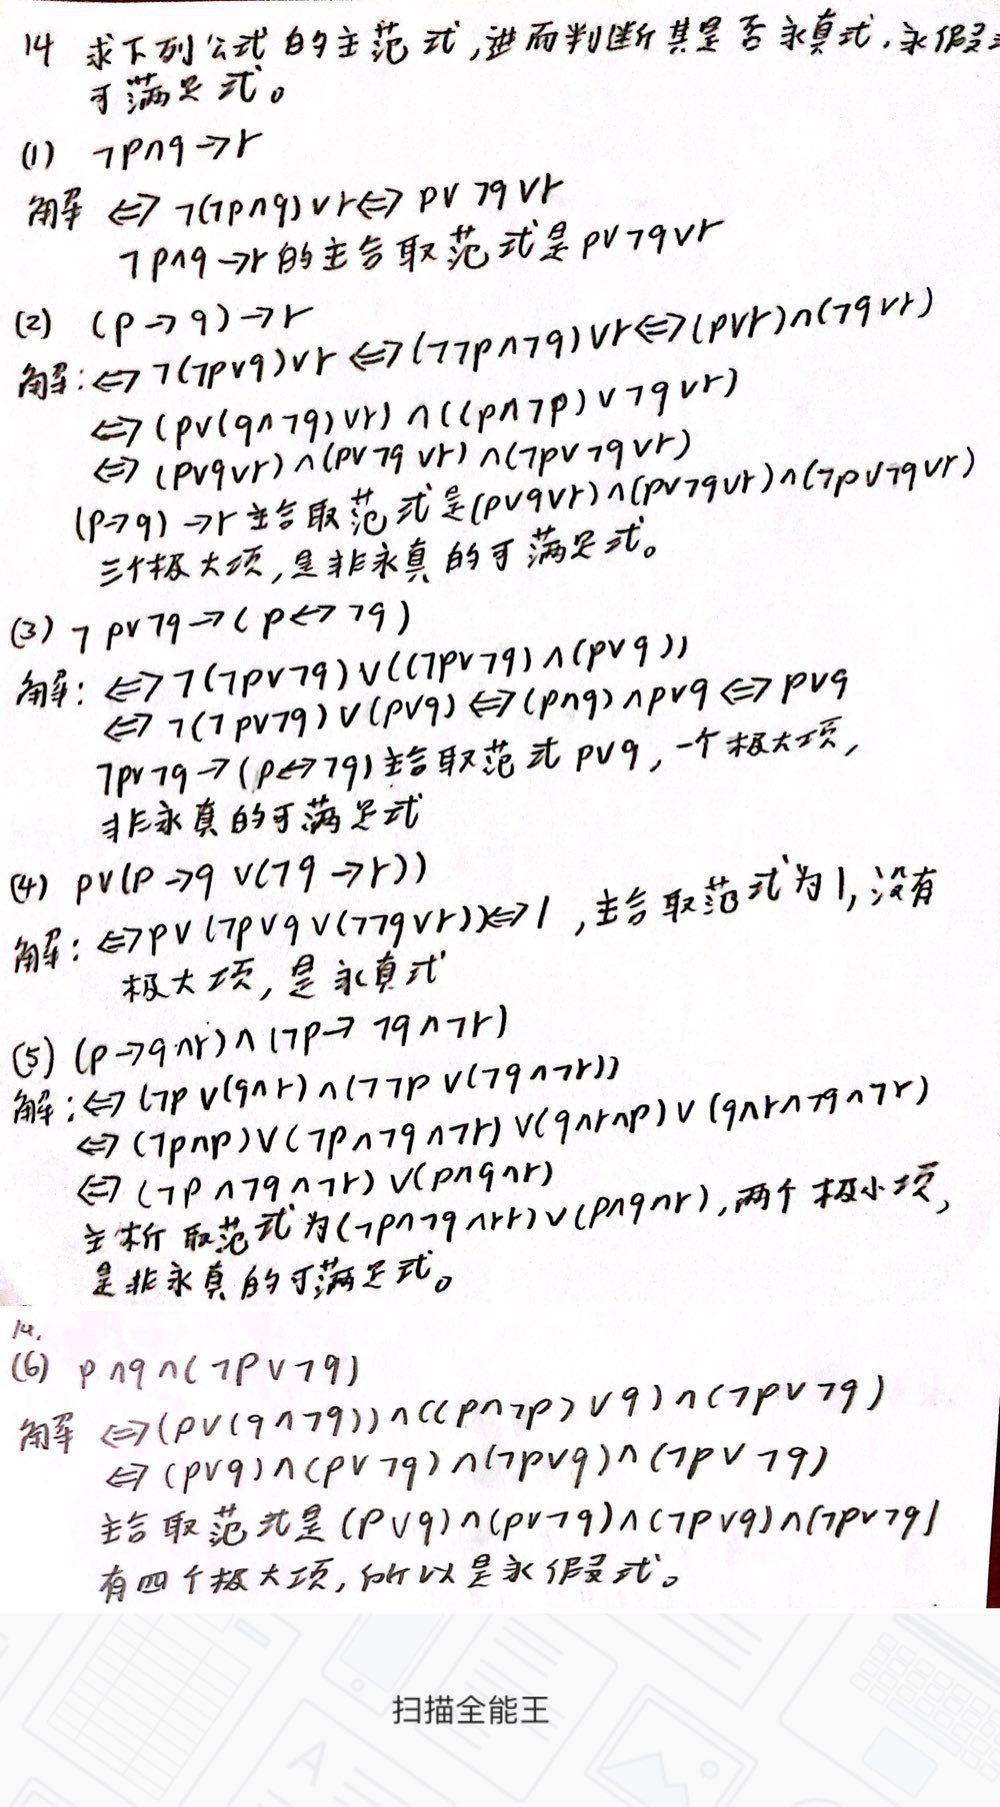 14 求下列公式的主范式,进而判断其是否永真式.永假
可满足式。
(1) ¬p∧q→r
解 ⇔ ¬(¬p∧q)∨r⇔ p∨¬q∨r
¬p∧q→r的主合取范式是p∨¬q∨r
(2) (p→q)→r
解:⇔¬(¬p∨q)∨r⇔(¬¬p∧¬q)∨r⇔(p∨r)∧(¬q∨r)
⇔(p∨(q∧¬q)∨r)∧((p∧¬p)∨¬q∨r)
⇔(p∨q∨r)∧(p∨¬q∨r)∧(¬p∨¬q∨r)
(p→q)→r主合取范式是(p∨q∨r)∧(p∨¬q∨r)∧(¬p∨¬q∨r)
三个极大项,是非永真的可满足式。
(3) ¬p∨¬q→(p↔¬q)
解: ⇔¬(¬p∨¬q)∨((¬p∨¬q)∧(p∨q))
⇔¬(¬p∨¬q)∨(p∨q)⇔(p∧q)∧p∨q⇔p∨q
¬p∨¬q→(p↔¬q)主合取范式p∨q,一个极大项,
非永真的可满足式
(4) p∨(p→q∨(¬q→r))
解: ⇔p∨(¬p∨q∨(¬¬q∨r))⇔1 ,主合取范式为1,没有
极大项,是永真式
(5) (p→q∧r)∧(¬p→¬q∧¬r)
解:⇔(¬p∨(q∧r)∧(¬¬p∨(¬q∧¬r))
⇔(¬p∧p)∨(¬p∧¬q∧¬r)∨(q∧r∧p)∨(q∧r∧¬q∧¬r)
⇔(¬p∧¬q∧¬r)∨(p∧q∧r)
主析取范式为(¬p∧¬q∧¬r)∨(p∧q∧r),两个极小项,
是非永真的可满足式。
14.
(6) p∧q∧(¬p∨¬q)
解 ⇔(p∨(q∧¬q))∧((p∧¬p)∨q)∧(¬p∨¬q)
⇔(p∨q)∧(p∨¬q)∧(¬p∨q)∧(¬p∨¬q)
主合取范式是(p∨q)∧(p∨¬q)∧(¬p∨q)∧(¬p∨¬q)
有四个极大项,所以是永假式。
扫描全能王